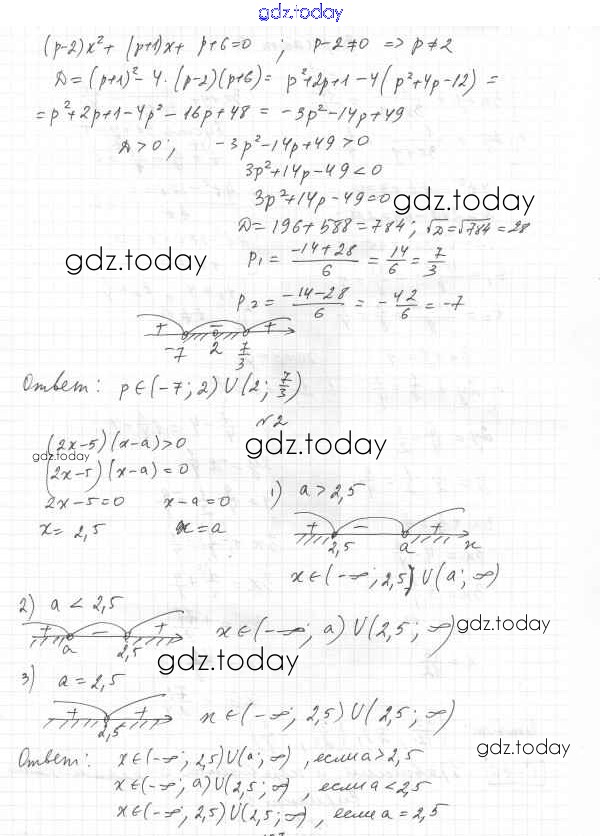 gdz.today
(p-2)x²+ (p+1)x+ p+6=0 ; p-2≠0 => p≠2
D=(p+1)²-4·(p-2)(p+6)= p²+2p+1-4(p²+4p-12) =
=p²+2p+1-4p²-16p+48 = -3p²-14p+49
D>0; -3p²-14p+49>0
3p²+14p-49<0
3p²+14p-49=0
gdz.today
D=196+588=784; √D=√784=28
gdz.today
p₁ = (-14+28)/6 = 14/6 = 7/3
p₂ = (-14-28)/6 = -42/6 = -7
+ - +
-7 2 7/3
Ответ: p∈(-7; 2)∪(2; 7/3)
№2
(2x-5)(x-a)>0
gdz.today
gdz.today
(2x-5)(x-a)=0
2x-5=0 x-a=0
x= 2,5 x=a
1) a>2,5
+ - +
2,5 a x
x∈(-∞; 2,5)∪(a; ∞)
2) a<2,5
+ - +
a 2,5
x∈(-∞; a)∪(2,5; ∞)
gdz.today
gdz.today
3) a=2,5
+ +
2,5
x∈(-∞; 2,5)∪(2,5; ∞)
Ответ: x∈(-∞; 2,5)∪(a; ∞), если a>2,5
gdz.today
x∈(-∞; a)∪(2,5; ∞), если a<2,5
x∈(-∞; 2,5)∪(2,5; ∞), если a=2,5